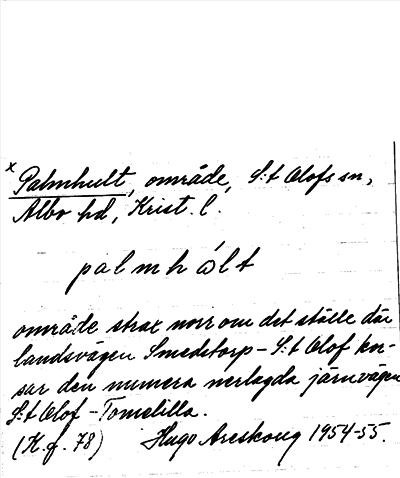 x Palmhult, område, S:t Olofs sn,
Albo hd, Krist. l.
palmhòlt
område strax norr om det ställe där
landsvägen Smedstorp - S:t Olof kor-
sar den numera nerlagda järnvägen
S:t Olof - Tomelilla.
(K.f. 78) Hugo Areskoug 1954-55.